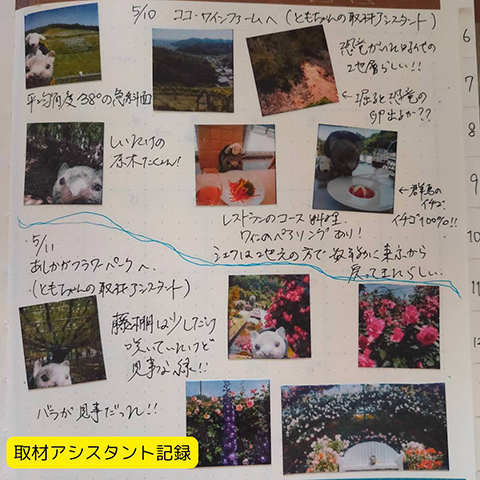 5/10 ココ・ワインファームへ(ともちゃんの取材アシスタント)
恐竜がいた時代の
地層らしい!!
← 掘ると恐竜の
卵出るか??
平均角度38°の急斜面
しいたけの
原木たくさん!
← 群馬の
イチゴ
イチゴ100%!!
レストランのコース料理
ワインのペアリングあり!
シェフは地元の方で数年前に東京から
戻ってきたらしい。
5/11
あしかがフラワーパークへ。
(ともちゃんの取材アシスタント)
藤棚は少しだけ
咲いていたけど
見事な緑!!
バラが見事だった!!
取材アシスタント記録
6
7
8
9
10
11
12